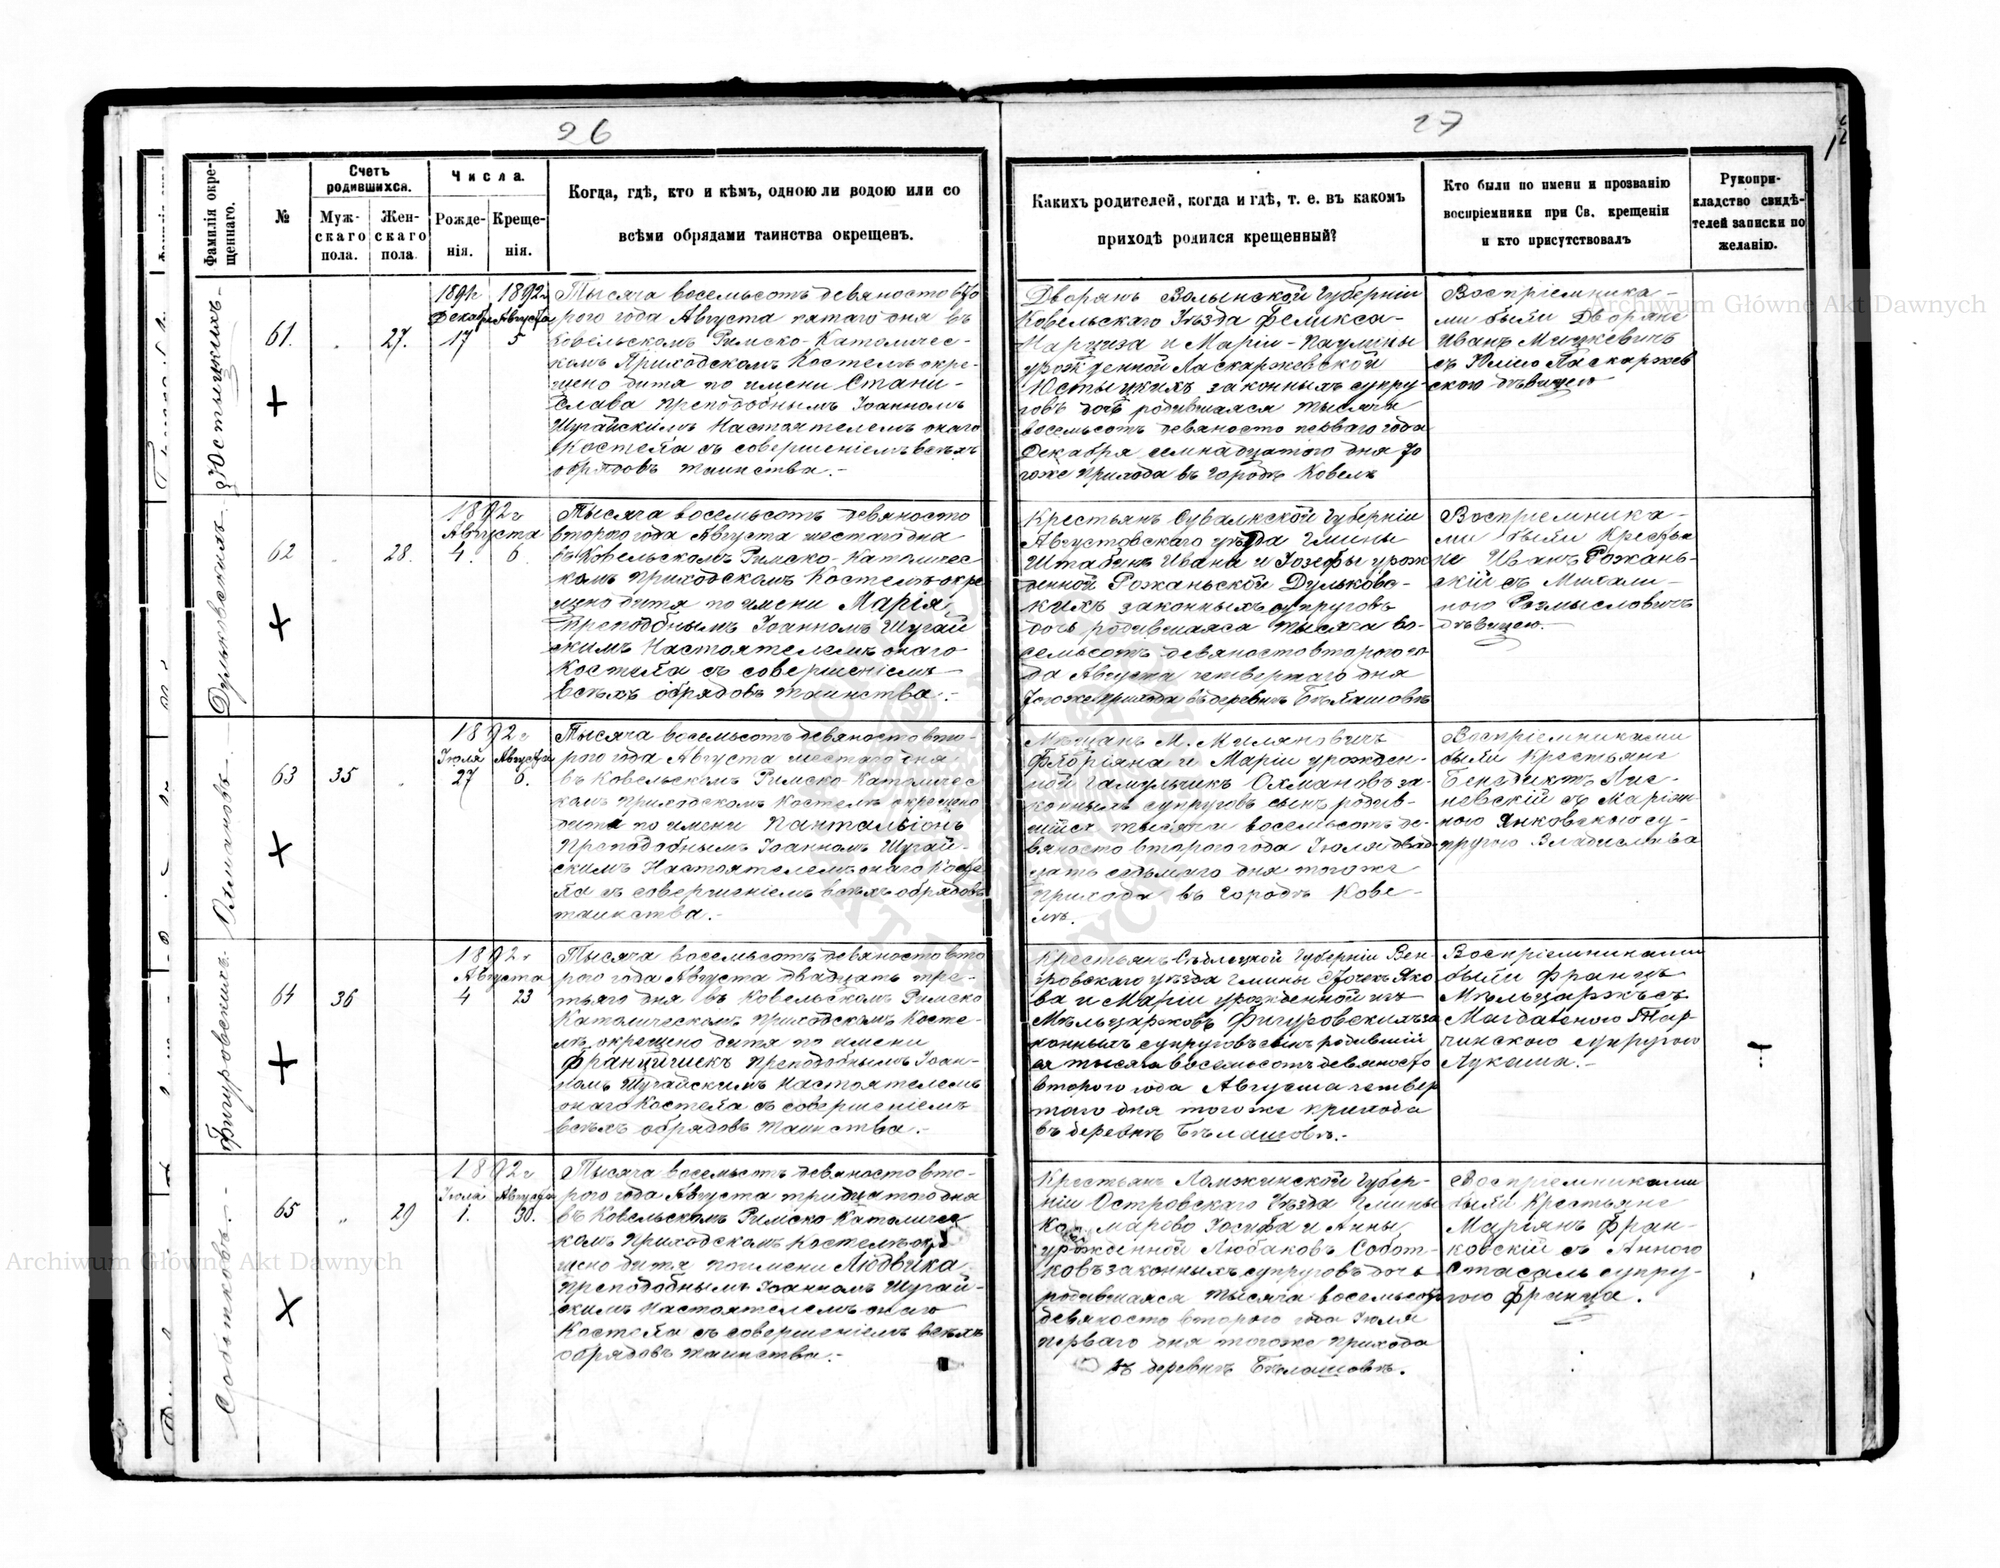 26
27
Фамилія окре-
щеннаго.
№
Счетъ
родившихся.
Муж-
скаго
пола.
Жен-
скаго
пола.
Числа.
Рожде-
нія.
Креще-
нія.
Когда, гдѣ, кто и кѣмъ, одною ли водою или со
всѣми обрядами таинства окрещенъ.
Какихъ родителей, когда и гдѣ, т. е. въ какомъ
приходѣ родился крещенный?
Кто были по имени и прозванію
воспріемники при Св. крещеніи
и кто присутствовалъ
Рукопри-
кладство свидѣ-
телей записки по
желанію.
61.
27.
1892г
Декабря Августа
17 5
Тысяча восемьсотъ девяносто вто
рого года Августа пятаго дня въ
Ковельскомъ Римско-Католичес-
комъ Приходскомъ Костелѣ окре-
щено дитя по имени Стани-
слава Преподобнымъ Іоанномъ
Шугайскимъ Настоятелемъ онаго
Костела съ совершеніемъ всѣхъ
обрядовъ таинства.-
Дворянъ Волынской Губерніи
Ковельскаго Уѣзда Феликса-
Нарциза и Маріи-Паулины
урожденной Ласкаржевской
законныхъ супру-
говъ дочь родившаяся тысяча
восемьсотъ девяносто перваго года
Декабря семнадцатого дня то
гоже прихода въ городѣ Ковелѣ
Воспріемника-
ми были Дворяне
Иванъ Мицкевичъ
съ Юліею Ласкаржев
скою дѣвицею
Дульковскихъ
62
28.
1892г
Августа
4. 6.
Тысяча восемьсотъ девяносто
второго года Августа шестаго дня
въ Ковельскомъ Римско-Католичес
комъ Приходскомъ Костелѣ окре
щено дитя по имени Марія
Преподобнымъ Іоанномъ Шугай
скимъ Настоятелемъ онаго
Костела съ совершеніемъ
всѣхъ обрядовъ таинства.-
Крестьянъ Сувалкской Губерніи
Августовскаго уѣзда Гмины
Штабинъ Ивана и Іозефы урож
денной Рожаньской Дульковс-
кихъ законныхъ супруговъ
дочь родившаяся тысяча во-
семьсотъ девяносто второго го-
да Августа четвертаго дня
тогоже прихода въ деревнѣ Бѣлашовѣ
Воспріемника-
ми были Крестья
не Иванъ Рожань-
скій съ Михали-
ною Розмысловичъ
дѣвицею.
Охмановъ
63
35
1892г
Іюля Августа
27 6.
Тысяча восемьсотъ девяносто вто-
рого года Августа шестаго дня
въ Ковельскомъ Римско-Католичес
комъ Приходскомъ Костелѣ окрещено
дитя по имени Панталіонъ
Преподобнымъ Іоанномъ Шугай-
скимъ Настоятелемъ онаго Косте
ла съ совершеніемъ всѣхъ обрядовъ
таинства.-
Мѣщанъ М. Миляновичъ
Флоріяна и Маріи урожден-
ной Гамульчикъ Охмановъ за-
конныхъ супруговъ сынъ родив-
шійся тысяча восемьсотъ де-
вяносто второго года Іюля двад
цать седьмаго дня тогоже
прихода въ городѣ Кове-
лѣ.
Воспріемниками
были Крестьяне
Бенедиктъ
съ Маріян-
ною Янковскою су-
пругою Владислава
Фигуровскихъ.
64
36
1892г
Августа
4 23
Тысяча восемьсотъ девяносто вто
рого года Августа двадцать тре-
тьяго дня въ Ковельскомъ Римско
Католическомъ Приходскомъ Косте-
лѣ окрещено дитя по имени
Францишекъ Преподобнымъ Іоан-
номъ Шугайскимъ Настоятелемъ
онаго Костела съ совершеніемъ
всѣхъ обрядовъ таинства.-
Крестьянъ Сѣдлецкой Губерніи Вен-
гровскаго уѣзда Гмины Сточекъ Яко
ва и Маріи урожденной изъ
Мѣльцарковъ Фигуровскихъ за
конныхъ супруговъ сынъ родившій
ся тысяча восемьсотъ девяносто
второго года Августа четвер
таго дня тогоже прихода
въ деревнѣ Бѣлашовѣ.-
Воспріемниками
были Францъ
Мѣльцаржъ съ
Магдаленою
супругою
Лукаша.-
Соботковъ.-
65
29
1892г
Іюля Августа
1. 30.
Тысяча восемьсотъ девяносто вто-
рого года Августа тридцатого дня
въ Ковельскомъ Римско-Католичес
комъ Приходскомъ Костелѣ окре
щено дитя по имени Людвика
Преподобнымъ Іоанномъ Шугай-
скимъ Настоятелемъ онаго
Костела съ совершеніемъ всѣхъ
обрядовъ таинства.-
Крестьянъ Ломжинской Губер-
ніи Островскаго Уѣзда Гмины
Іосифа и Анны
урожденной Любаковъ Собот-
ковъ законныхъ супруговъ дочь
родившаяся тысяча восемьсотъ
девяносто второго года Іюля
перваго дня тогоже прихода
въ деревнѣ Бѣлашовѣ.
Воспріемниками
были Крестьяне
Маріянъ Фран-
ковскій съ Анною
Стасаль супру-
гою Франца.
Archiwum Główne Akt Dawnych
Archiwum Główne Akt Dawnych